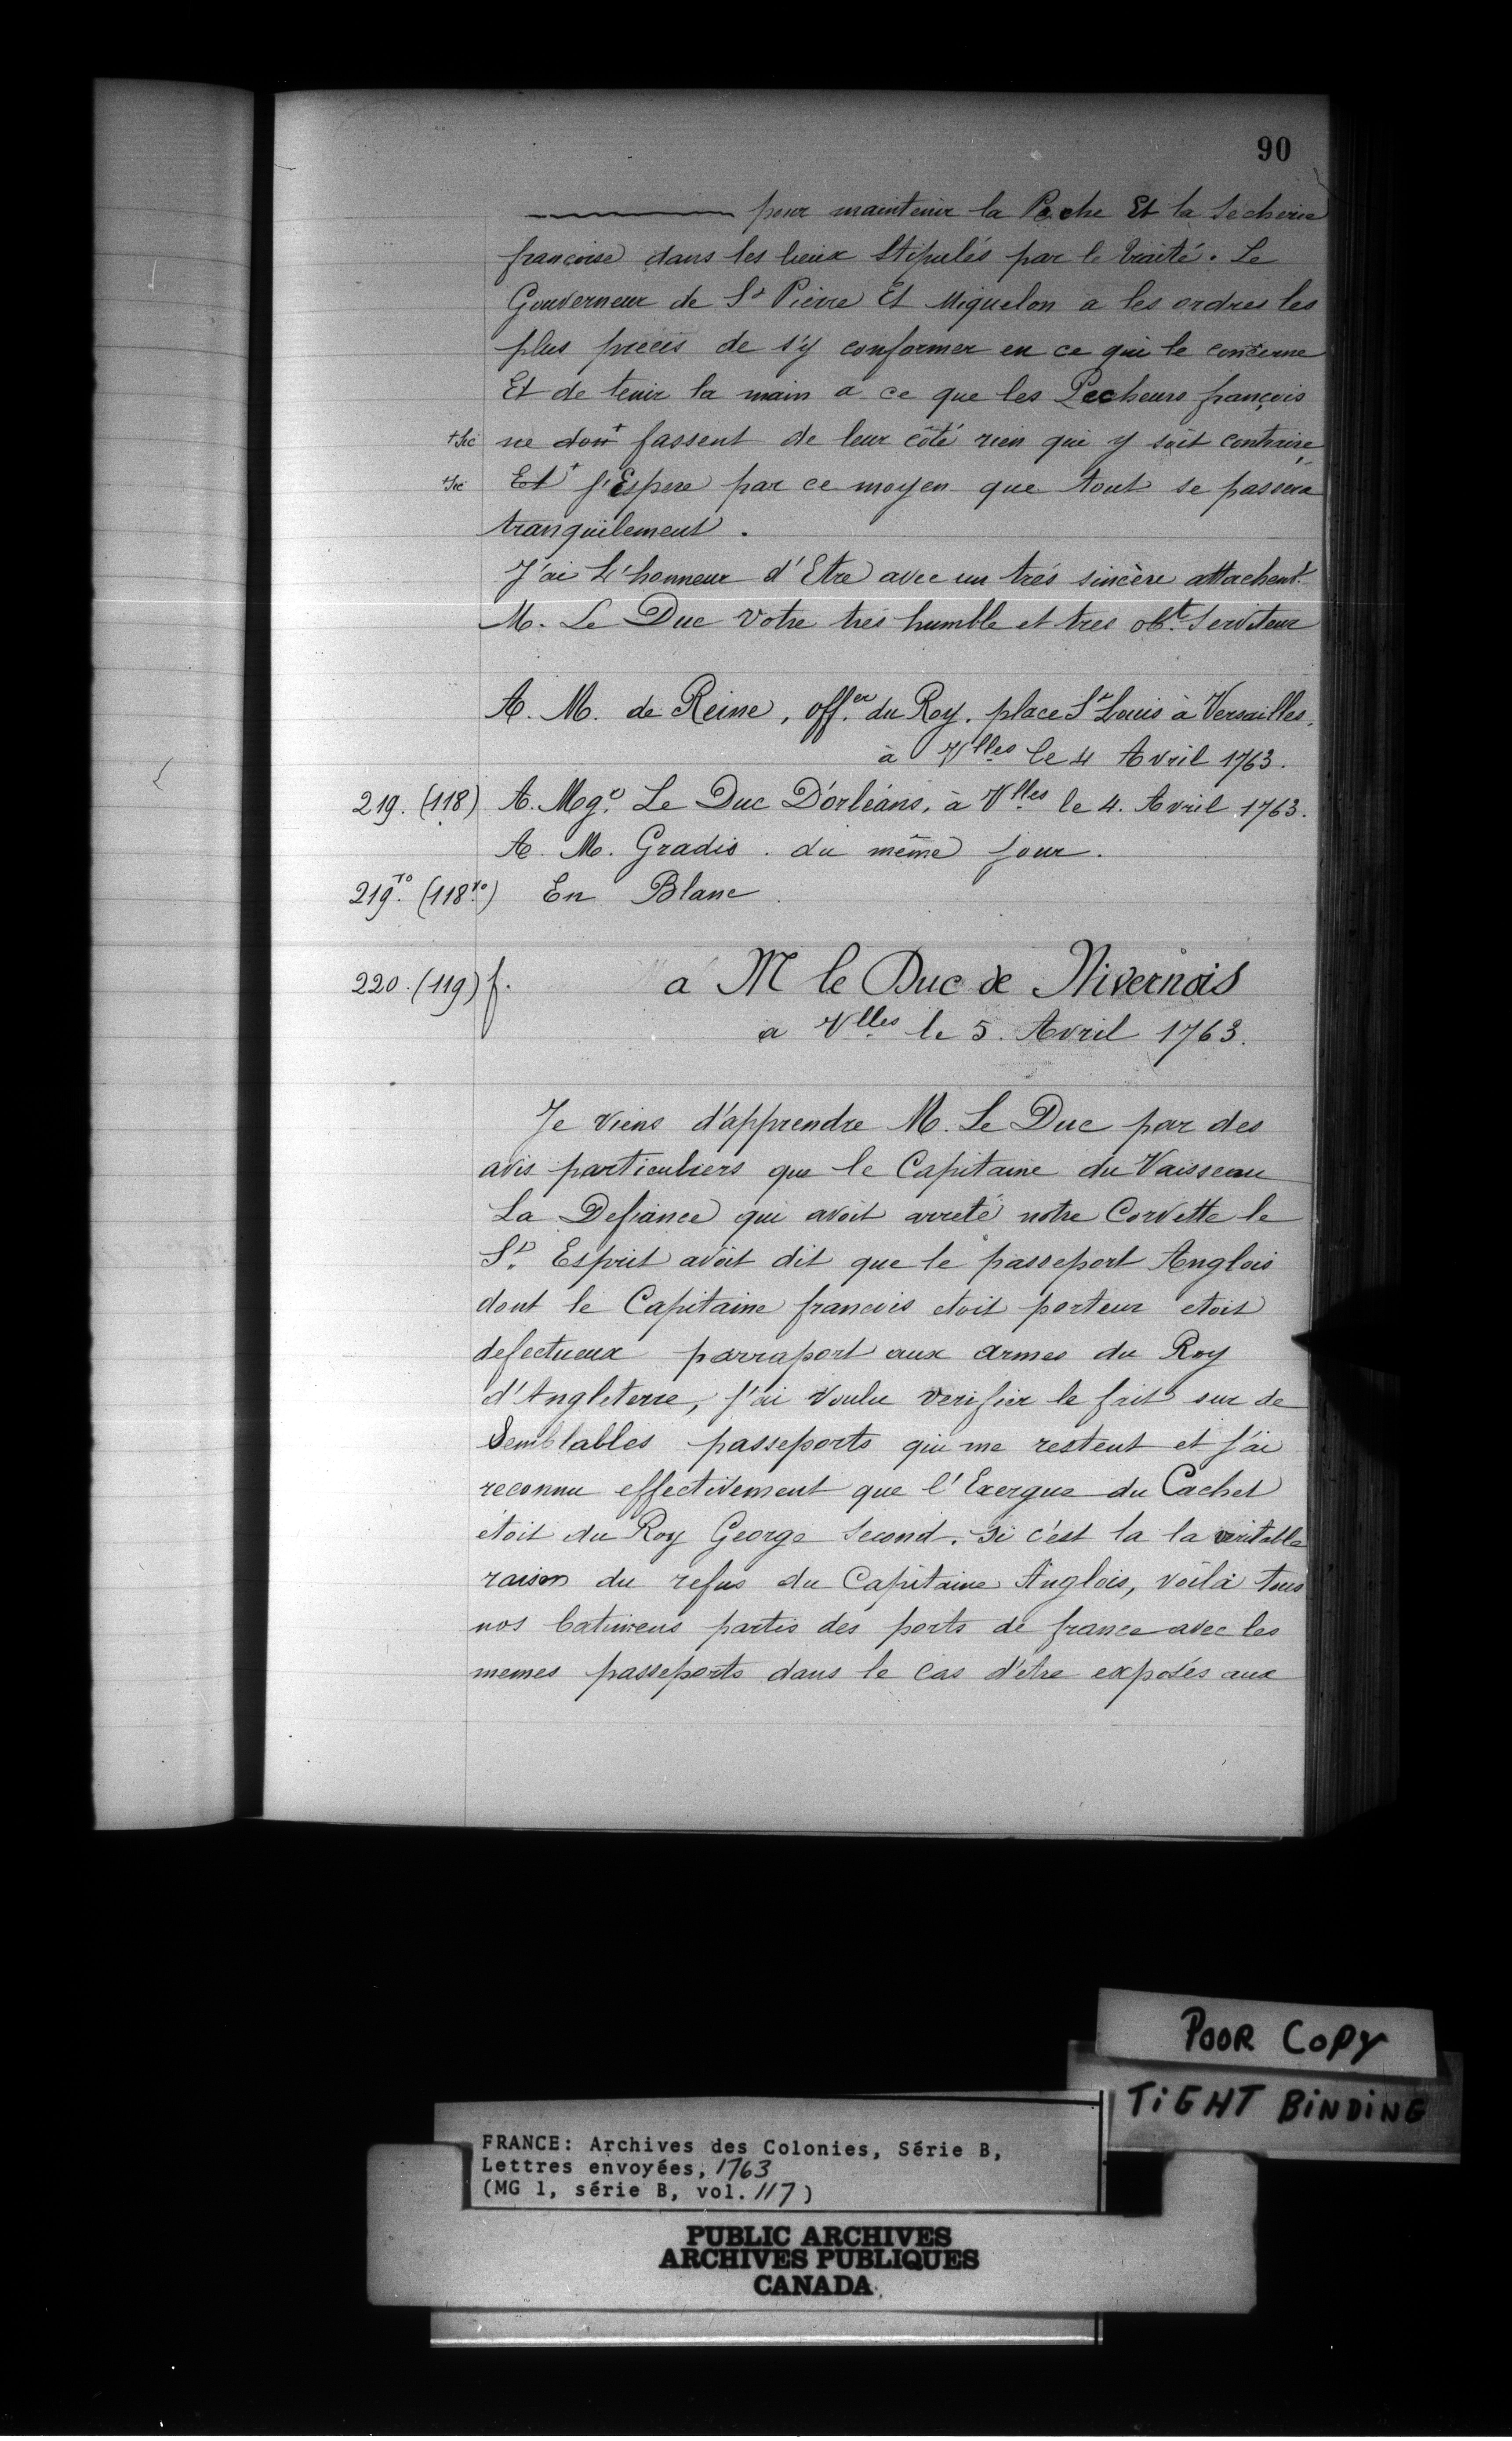 90
pour maintenir la Peche Et la Secherie
françoise dans les lieux Stipulés par le traité. Le
Gouverneur de St Pierre Et Miquelon a les ordres les
plus précis de s'y conformer en ce qui le concerne
Et de tenir la main a ce que les Pecheurs françois
+Sic ne dont+ fassent de leur côté rien qui y soit contraire,
+Sic Et+ j'Espere par ce moyen que tout se passera
tranquilement.
J'ai L'honneur d'Etre avec un trés sincère attachent
M. Le Duc votre trés humble et tres obt. Serviteur
A. M. de Reine, off.er du Roy. place St Louis à Versailles.
à Vlles le 4 Avril 1763.
219. (118) A. Mogr. Le Duc D'orléans, à Vlles le 4. Avril 1763.
A. M. Gradis. du même jour.
219.vo (118.vo) En Blanc
220. (119) f. a M le Duc de Nivernois
a Vlles le 5. Avril 1763.
Je viens d'apprendre M. Le Duc par des
avis particuliers que le Capitaine du Vaisseau
La Defiance qui avoit arreté notre Corvette le
St. Esprit avoit dit que le passeport Anglois
dont le Capitaine francois etoit porteur etoit
defectueux parraport aux armes du Roy
d'Angleterre, j'ai voulu verifier le fait sur de
Semblables passeports qui me restent et j'ai
reconnu effectivement que l'Exergue du Cachet
étoit du Roy George Second. Si c'est la la veritable
raison du refus du Capitaine Anglois, voilà tous
nos batimens partis des ports de france avec les
memes passeports dans le cas d'être exposés aux
POOR COPY
TIGHT BINDING
FRANCE: Archives des Colonies, Série B,
Lettres envoyées, 1763
(MG 1, série B, vol. 117)
PUBLIC ARCHIVES
ARCHIVES PUBLIQUES
CANADA